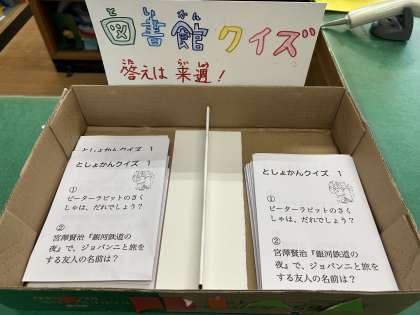 図書館クイズ
としょかん
答えは来週！
こた らいしゅう
としょかんクイズ 1
としょかんクイズ 1
①
ピーターラビットのさく
しゃは、だれでしょう？
②
宮澤賢治『銀河鉄道の
夜』で、ジョバンニと旅を
する友人の名前は？
としょかんクイズ 1
①
ピーターラビットのさく
しゃは、だれでしょう？
②
宮澤賢治『銀河鉄道の
夜』で、ジョバンニと旅を
する友人の名前は？